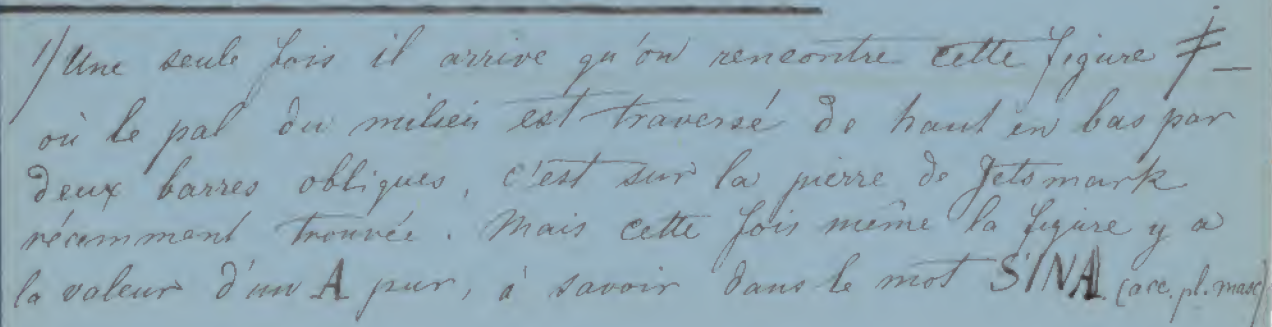 1) Une seule fois il arrive qu'on rencontre cette figure ǂ —
où le pal du milieu est traversé de haut en bas par
deux barres obliques, c'est sur la pierre de Jetsmark
récemment trouvée. Mais cette fois même la figure y a
la valeur d'un A pur, à savoir dans le mot SINA (acc. pl. masc)